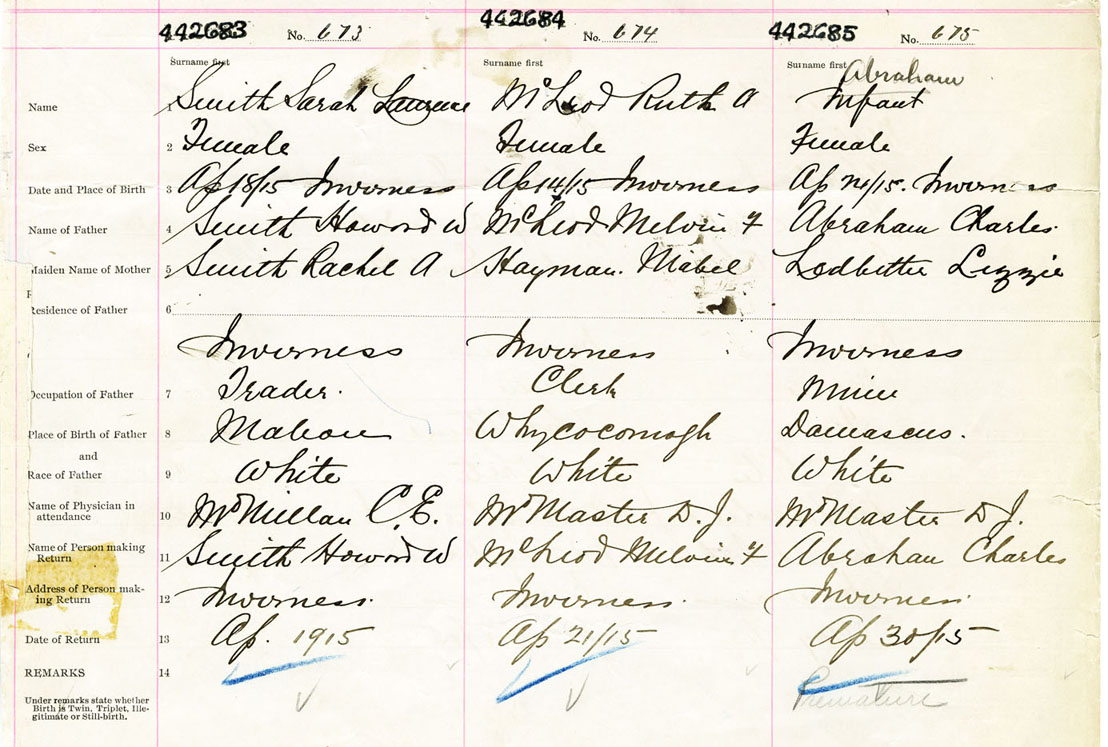 442683 No. 673 442684 No. 674 442685 No. 675
Surname first Surname first Surname first Abraham
Name 1 Smith Sarah Laurence McLeod Ruth A Infant
Sex 2 Female Female Female
Date and Place of Birth 3 Ap 18/15 Inverness Ap 14/15 Inverness Ap /15. Inverness
Name of Father 4 Smith Howard W McLeod Melvin F Abraham Charles.
Maiden Name of Mother 5 Smith Rachel A Hayman. Mabel Ledbetter Lizzie
Residence of Father 6
Inverness Inverness Inverness
Occupation of Father 7 Trader. Clerk Miner
Place of Birth of Father 8 Mabou Whycocomagh Damascus.
and
Race of Father 9 White White White
Name of Physician in
attendance 10 McMillan C.E. McMaster D.J. McMaster D J.
Name of Person making
Return 11 Smith Howard W McLeod Melvin F Abraham Charles
Address of Person mak-
ing Return 12 Inverness. Inverness. Inverness.
Date of Return 13 Ap. 1915 Ap 21/15 Ap 30/15
REMARKS 14 Premature
Under remarks state whether
Birth is Twin, Triplet, Ille-
gitimate or Still-birth.